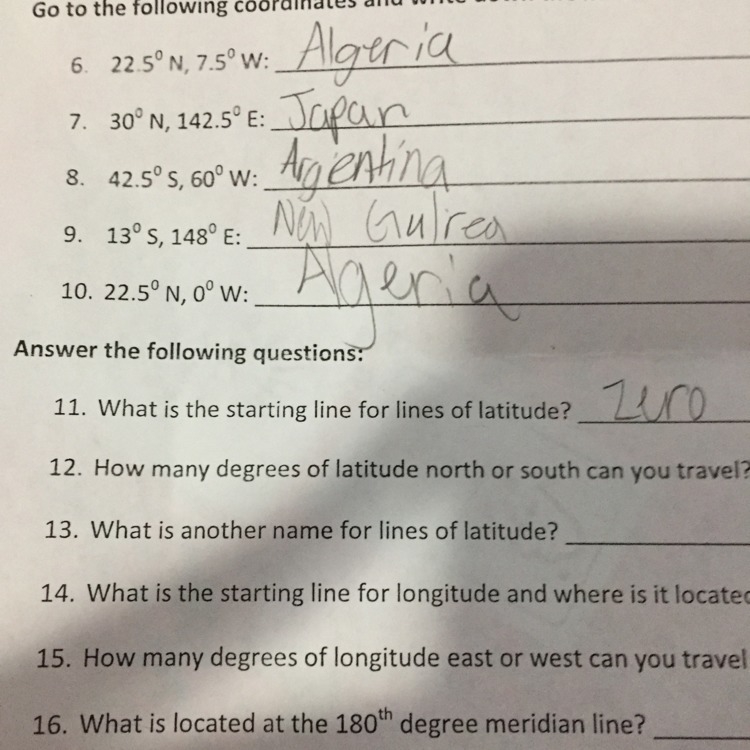 Go to the following coordinates and write down the
6. 22.5⁰ N, 7.5⁰ W: Algeria
7. 30⁰ N, 142.5⁰ E: Japan
8. 42.5⁰ S, 60⁰ W: Argentina
9. 13⁰ S, 148⁰ E: New
10. 22.5⁰ N, 0⁰ W: Algeria
Answer the following questions:
11. What is the starting line for lines of latitude? Zero
12. How many degrees of latitude north or south can you travel?
13. What is another name for lines of latitude?
14. What is the starting line for longitude and where is it located
15. How many degrees of longitude east or west can you travel
16. What is located at the 180th degree meridian line?